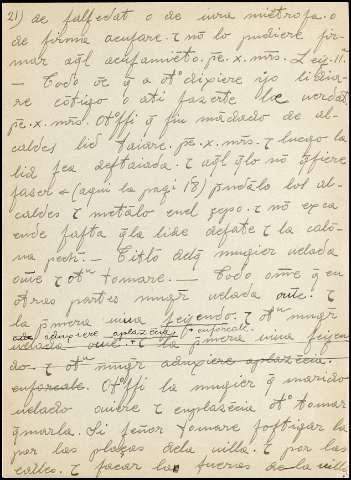 21) de falsedat o de mra mietrosa. o
de firma acusare. τ nõ lo pudiere fir-
mar aql̃ acusamiẽto. pẽ. x. mr̃s. Ley. IIª.
— Todo õe q̃ a otº dixiere yo lidia-
re cõtigo o ati fazerte he verdat
pẽ. x. mr̃s. Otºssi q̃ sin mãdado de al-
caldes lid taiare. pẽ. x. mr̃s. τ luego la
lid sea destaiada. τ aql̃ q̃lo nõ q̃siere
faser (aqui la pagi 18) p̃ndãlo los al-
caldes τ metãlo enel çepo. τ nõ exca
ende fasta q̃la lide desate τ la calõ-
na peche. — Titlo delq̃ mugier uelada
ouie τ otª tomare. — Todo ome q̃ en
otras partes mugr̃ uelada ouie. τ
la p̃mera uiua seyendo. τ otª mugr̃
aduxiere aplazẽcia enforcale.
uelada ouie. τ la p̃mera uiua seyen
do. τ otª mugr̃ aduxiere aplazẽcia.
enforcale. Otºssi la mugier q̃ marido
uelado ouiere τ enplazẽcia otº tomar
q̃marla. Si señor tomare fostigar la
por las plaças dela uilla. τ por las
calles. τ sacar la fueras de la uilla